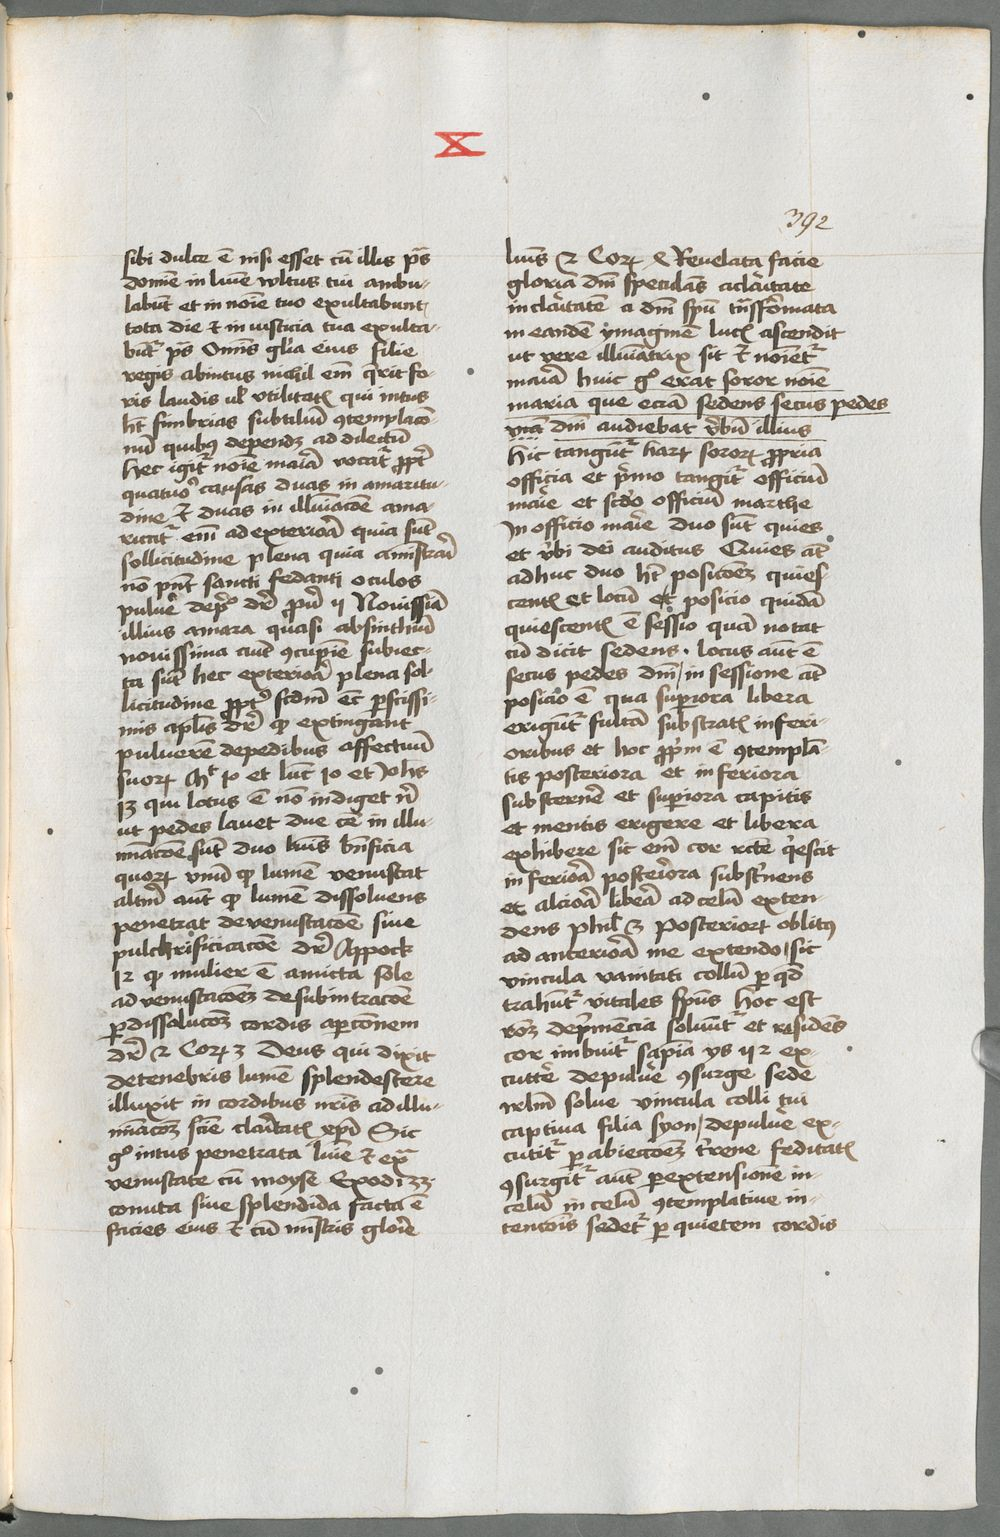 X
392
sibi dulce ē nisi esset cū illis ps̄
domīe in lum̄e vultus tui ambu-
labūt et in noīe tuo exultabunt
tota die et in iusticia tua exulta-
būtʳ ps̄ Om̄is gl̄ia eius filie
regis abintus nichil em̄ q̄rit fo-
ris laudis ul̄ vtilitatis qui intus
ht̄ fimbrias subtiliū ꝯtemplacō-
nū quibꝰ dependȝ ad dilectū
hec igit̄ noīe maīa vocat̄ ꝓpt̄
quatuoꝰ causas duas in amaritu-
dine et duas in illuīacōe ama-
ricat̄ em̄ ad exterioā quia sūt
sollicitudine plena quia
nō pn̄t sancti fedanti oculos
puluē dr̄ ꝓuꝰ ij Nouissīa
illius amara quasi absinthiū
nouissima ꝯcupīe subiec-
ta sūt hec exterioā plena sol-
licitudine ꝓptꝰ scdm̄ ec̄ ꝑfctissi-
mis apl̄is dr̄ ꝙ extingant
puluerē depedibus affectuū
suoꝝ Mᵗ 10 et luc̄ 10 et Joh̄s
13 qui lotus ē nō indiget nī
ut pedes lauet due cē in illu-
mīacōe sūt duo luīs bn̄ficia
quoꝝ vnū ꝙ lumē venustat
altm̄ aut̄ ꝙ lumē dissoluens
penetrat de venustacōe siue
pulchrificicacōe dr̄ Appock
12 ꝙ mulier ē amicta sole
ad venustacōeȝ desubintracōe
ꝑ dissolucōeȝ cordis aꝑcōnem
dr̄ 2 Coꝝ 3 Deus qui dixit
detenebris lumē splendescere
illuxit in cordibus nr̄is ad illu-
mīacōeȝ scīe clāitatis xp̄i Sic
gᵒ intus penetrata lum̄e et exᵃ
venustate cū moyse Exodi 33
cornuta siue splendida facta ē
facies eius et cū mīstris gloīe
luīs 2 Coꝝ Reuelata facie
gloria dm̄ speculās aclāitate
in clāitatē a dm̄ spū tn̄sfōmata
in eandē ymaginē lucis ascendit
ut vere illuīatrix sit et noīetʳ
maīa huic gᵒ erat soror noīe
maria que eciā sedens secus pedes
dm̄ audiebat v̄bū illius
hic tangūtʳ haꝝ soroꝝ ꝓpria
officia et p̄mo tangitʳ officiū
maīe et scdᵒ officiū marthe
In officio maīe duo sūt quies
et v̄bi dei auditus Quies at̄
adhuc duo ht̄ posicōeȝ quies-
centis et locū et posicio quidā
quiescentis ē sessio quā notat
cū dicit sedens . locus aut̄ ē
secus pedes dm̄ / in sessione at̄
posicio ē qua supiora libera
erigūtʳ fultā substratis inferi-
oribus et hoc ꝓpm̄ ē ꝯtemplā-
tis posteriora et inferiora
substernē et supiora capitis
et mentis erigere et libera
exhibere sit em̄ cor rcte q̄escit
inferioā posteriora subst̄nens
et alcioā libeā ad celū exten-
dens phil̄ 3 posterioꝝ oblitꝰ
ad anterioā me extendo / sic
vincula vanitatis collū ꝑ qd̄
trahūtʳ vitales spūs hoc est
dep̄mencia soluūtʳ et residens
cor imbuitʳ sapīa ys 112 ex-
cutē depuluē ꝯsurge sede
irlm̄ solue vincula colli tui
captiua filia syon / depuluē ex-
cutitʳ ꝑ abiectōeȝ t̄rene feditatis
ꝯsurgitʳ aut̄ ꝑextensionē in
celū in celū ꝯtemplatiue in-
tencōis sedetʳ ꝑ quietem cordis